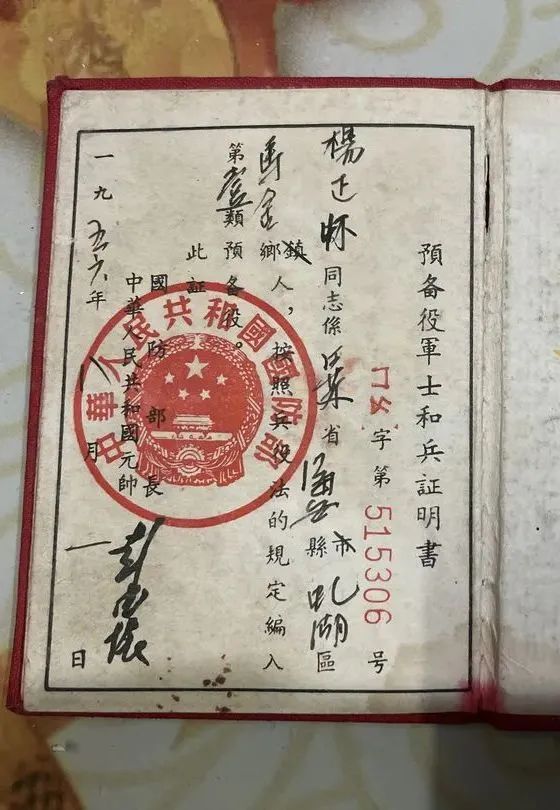 預备役軍士和兵証明書
字第515306号
楊正怀同志係省縣市湖區
鄉鎮人,按照兵役法的規定編入
第壹類預备役。
此証
國防部長
中華人民共和國元帥 彭德怀
一九五六年八月一日
中華人民共和國國防部